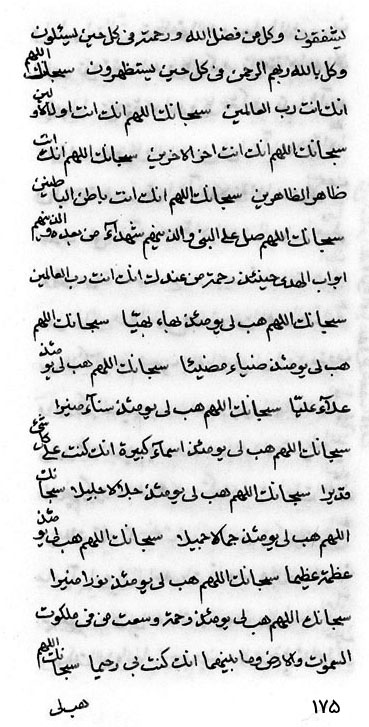 يشفقون وكل من فضل الله ورحمته في كل حين يسئلون
وكل بالله ربهم الرحمن في كل حين يستظهرون سبحانك اللهم
انك انت رب العالمين سبحانك اللهم انك انت اول الاولين
سبحانك اللهم انك انت اخر الاخرين سبحانك اللهم انك انت
ظاهر الظاهرين سبحانك اللهم انك انت باطن الباطنين
سبحانك اللهم صل على النبي والذينهم شهداء من بعده والذينهم
ابواب الهدى حينئذ رحمة من عندك انك انت رب العالمين
سبحانك اللهم هب لي يومئذ بهاء بهيا سبحانك اللهم
هب لي يومئذ ضياء مضيئا سبحانك اللهم هب لي يومئذ
علاء عليا سبحانك اللهم هب لي يومئذ سناء منيرا
سبحانك اللهم هب لي يومئذ اسماء كبيرة انك كنت على كل شيء
قديرا سبحانك اللهم هب لي يومئذ جلالا جليلا سبحانك
اللهم هب لي يومئذ جمالا جميلا سبحانك اللهم هب لي يومئذ
عظمة عظيما سبحانك اللهم هب لي يومئذ نورا منيرا
سبحانك اللهم هب لي يومئذ رحمة وسعت من في ملكوت
السموات والارض وما بينهما انك كنت بي رحيما سبحانك اللهم
هب لي
۱۷۵